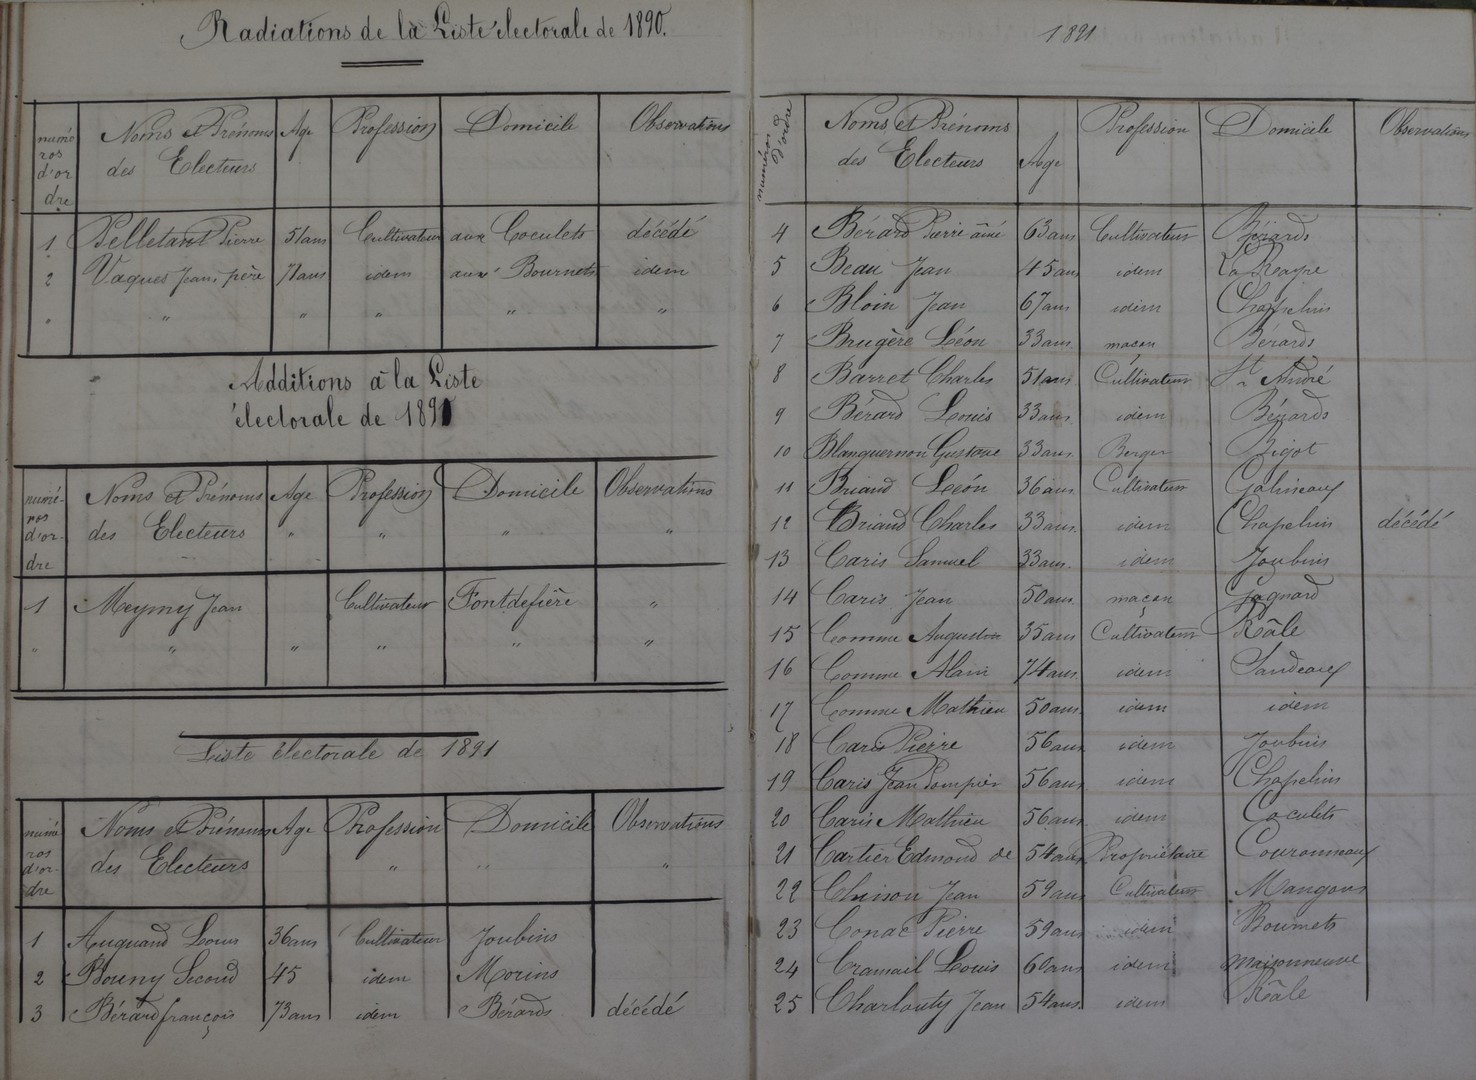 Radiations de la Liste électorale de 1890.
numéros d'ordre Noms et Prénoms des Electeurs Age Profession Domicile Observations
1 Pelletant Pierre 51 ans Cultivateur aux Coculets décédé
2 Vaques Jean, père 71 ans idem aux Bournets idem
" " " " " "
Additions à la Liste
électorale de 1891
numéros d'ordre Noms et Prénoms des Electeurs Age Profession Domicile Observations
1 Meymy Jean Cultivateur Fontdefière "
" " " " " "
Liste électorale de 1891
numéros d'ordre Noms et Prénoms des Electeurs Age Profession Domicile Observations
1 Auguand Louis 36 ans Cultivateur Joubins
2 Bouny Second 45 idem Morins
3 Bérard françois 73 ans idem Bérards décédé
1891
numéros d'ordre Noms et Prénoms des Electeurs Age Profession Domicile Observations
4 Bérard Pierre ainé 63 ans Cultivateur Bérards
5 Beau Jean 45 ans idem La Rayre
6 Bloin Jean 67 ans idem Chappelins
7 Brugère Léon 33 ans maçon Bérards
8 Barret Charles 51 ans Cultivateur St André
9 Bérard Louis 33 ans idem Bérards
10 Blanquernon Gustave 33 ans Berger Bigot
11 Briand Léón 36 ans Cultivateur Galineaux
12 Briand Charles 33 ans idem Chapelins décédé
13 Caris Samuel 33 ans idem Joubins
14 Caris Jean 50 ans maçon Gagnard
15 Comme Augustin 35 ans Cultivateur Râle
16 Comme Alain 74 ans idem Sandeaux
17 Comme Mathieu 50 ans idem idem
18 Caris Pierre 56 ans idem Joubins
19 Caris Jean Pompier 56 ans idem Chapelins
20 Caris Mathieu 56 ans idem Coculets
21 Cartier Edmond de 54 ans Propriétaire Couronneaux
22 Chinson Jean 59 ans Cultivateur Mangons
23 Conac Pierre 59 ans idem Bournets
24 Cramail Louis 60 ans idem maisonneuve
25 Charlouty Jean 54 ans idem Râle